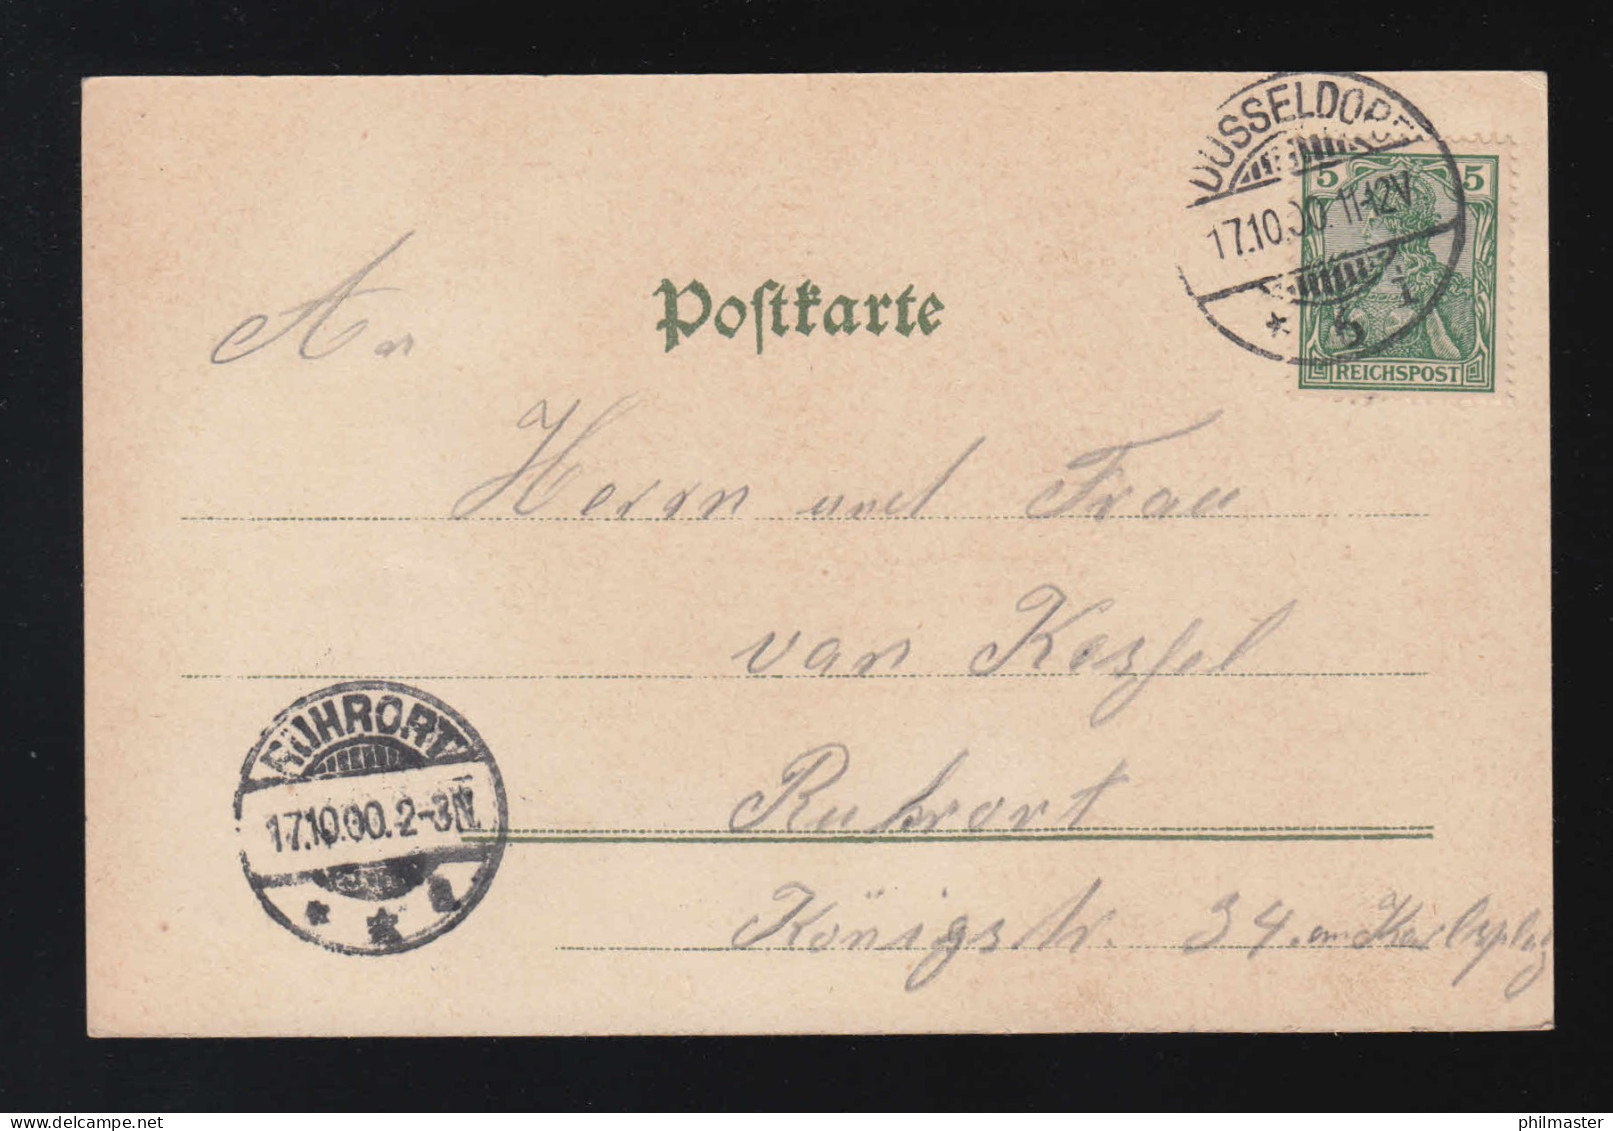 DÜSSELDORF
17.10.00. 11-12V
* 5 i
5 5
REICHSPOST
Postkarte
An
Herrn und Frau
van Kessel
Ruhrort
Königstr. 34. am Karlsplatz
RUHRORT
17.10.00. 2-3N.
* * a.
philmaster